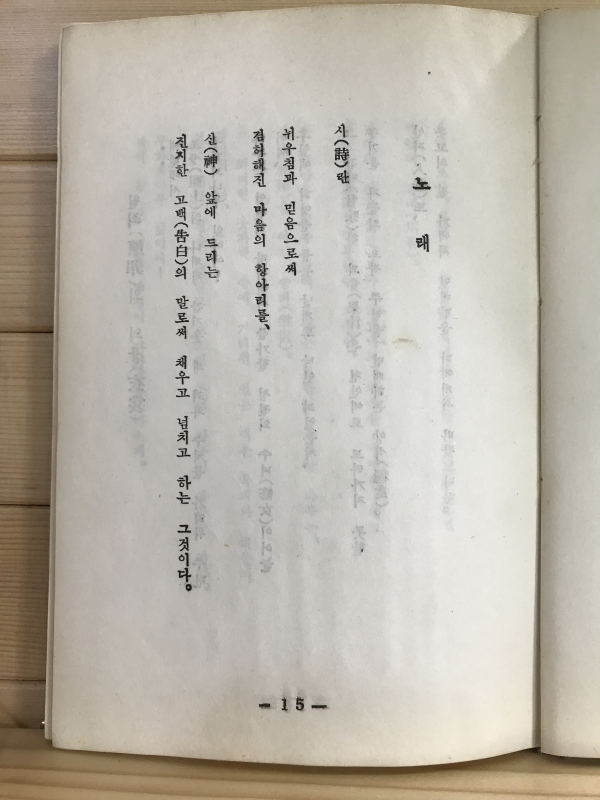 노래
시(詩)란
뉘우침과 믿음으로써
겸허해진 마음의 항아리를,
신(神) 앞에 드리는
진지한 고백(告白)의 말로써 채우고 넘치고 하는 그것이다.
— 15 —